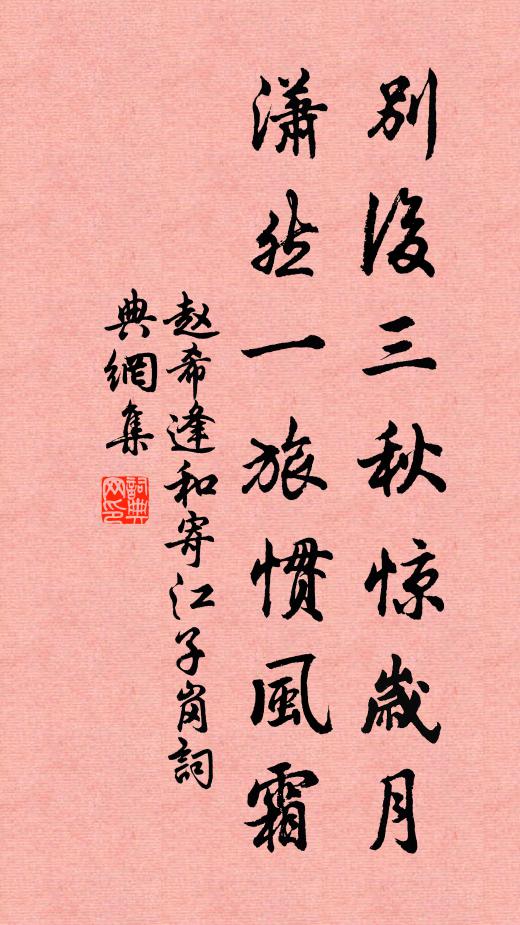 別後三秋惊歲月
瀟然一旅慣風霜
赵希逢和寄江子岗詞
典網集
詞典网印